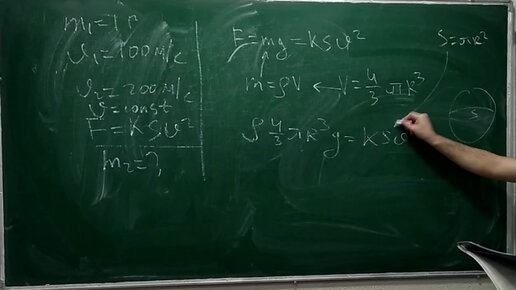 m₁=1г
υ₁=100м/с
υ₂=200м/с
υ=const
F=KSυ²
m₂=?
F=mg=KSυ²
m=ρV ← V=4/3 πR³
ρ 4/3 πR³g=KSυ
S=πR²
S